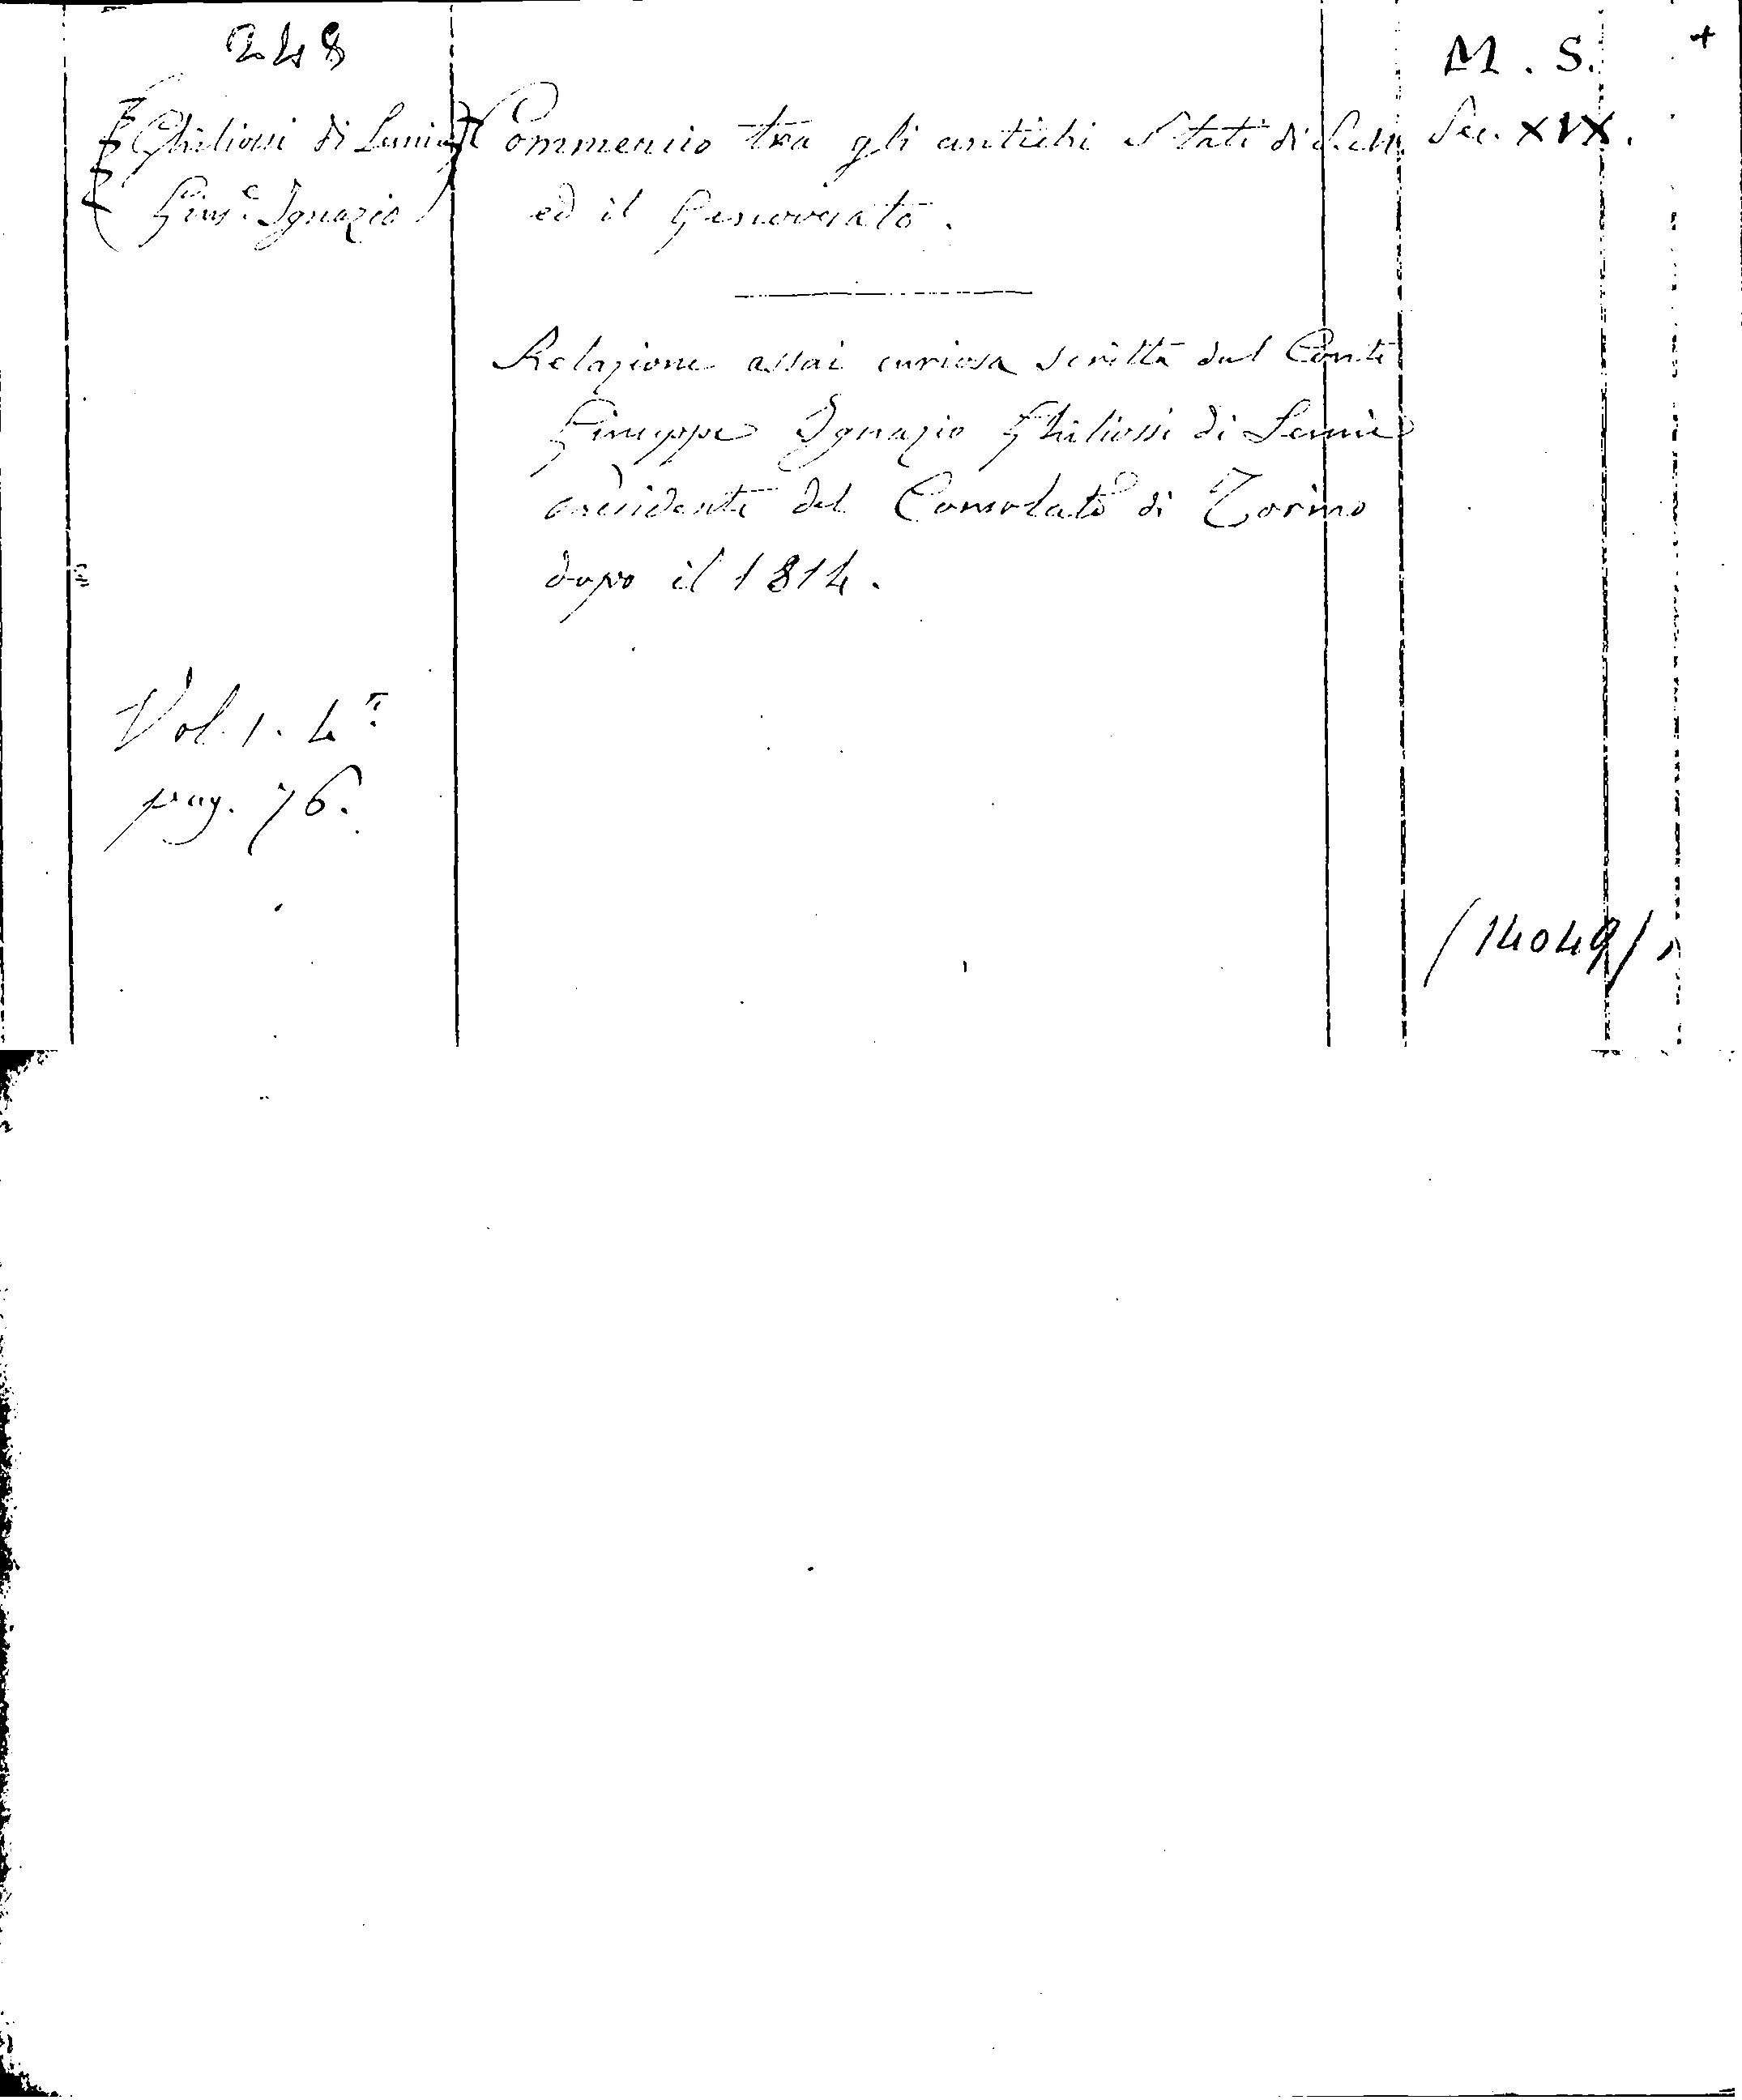 248
M. S. +
Ghiliossi di Lemie
Commercio tra gli antichi Stati di S.M. Sec. XIX.
Gius.e Ignazio
ed il Genovesato.
Relazione assai curiosa scritta dal Conte
Giuseppe Ignazio Ghiliossi di Lemie
presidente del Consolato di Torino
dopo il 1814.
Vol. 1. 4°:
pag. 76.
(14049)